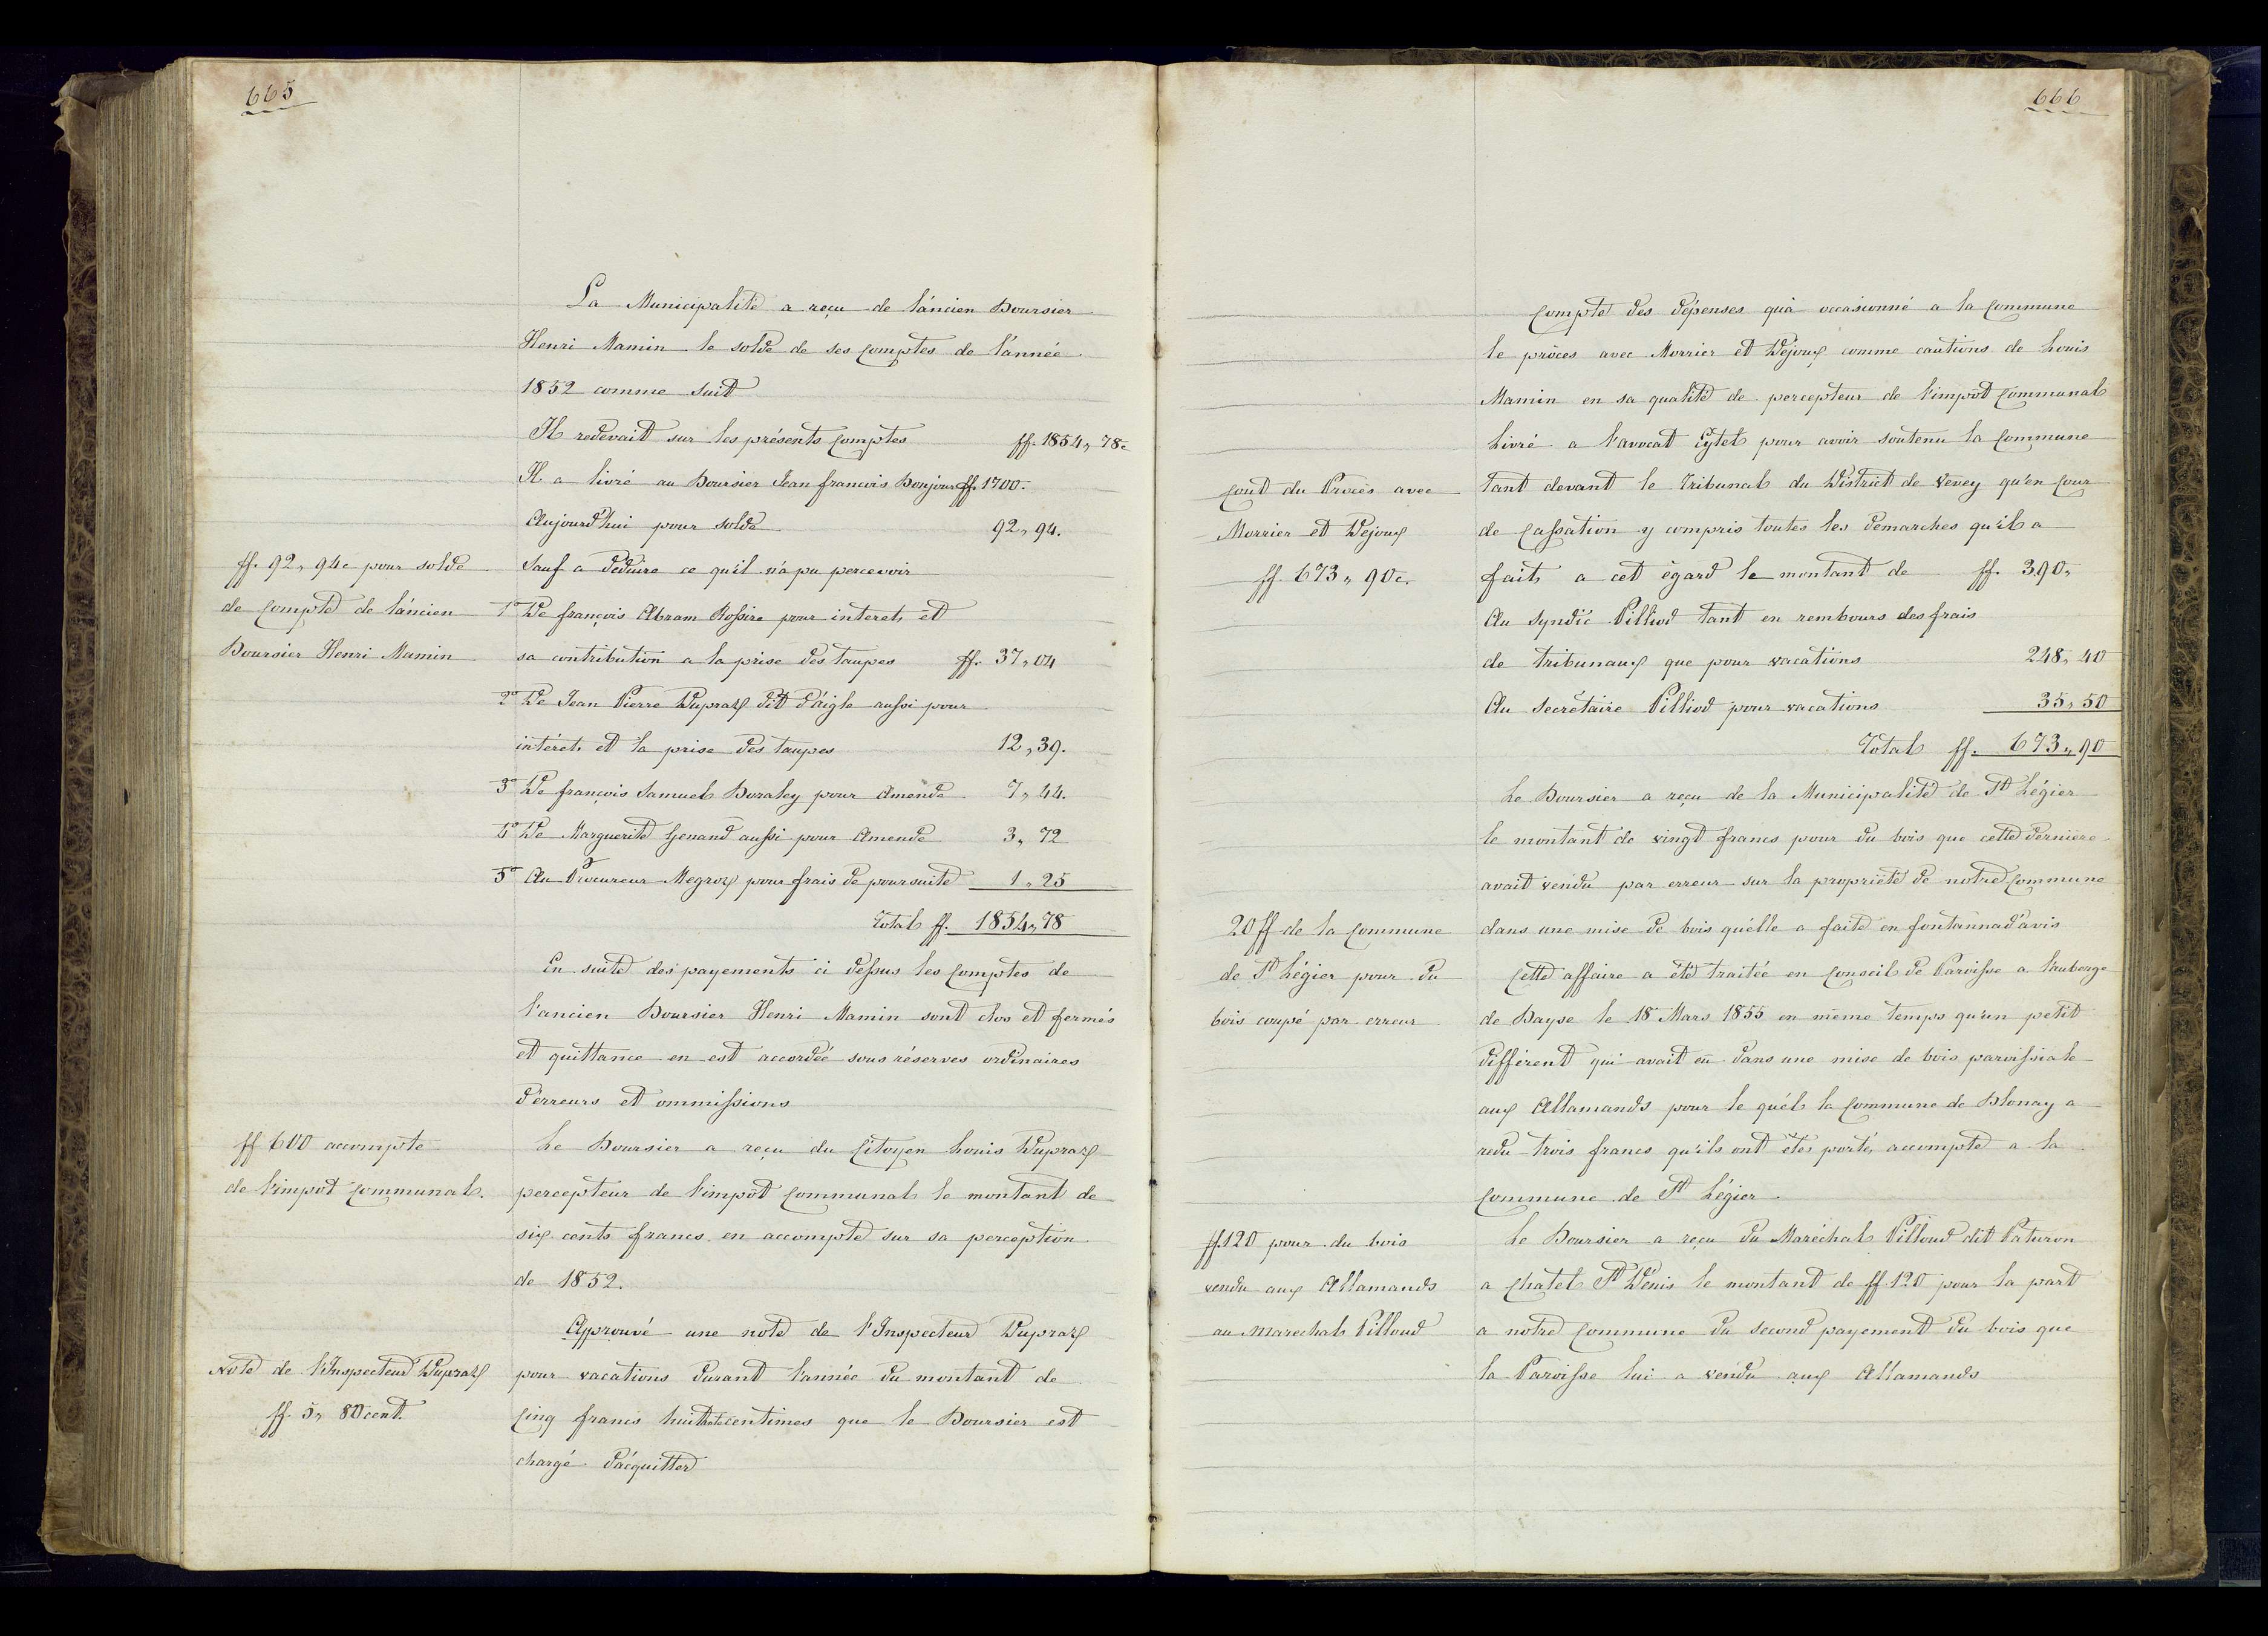 665
La Municipalité a reçu de l'ancien Boursier
Henri Mamin le solde de ses Comptes de l'année
1852 comme suit
Il redevait sur les présents Comptes ff. 1854,, 78c
Il a livré au Boursier Jean francois Bonjour ff. 1700.
Aujourd'hui pour solde 92,, 94.
ff. 92,, 94c pour solde
de Compte de l'ancien
Boursier Henri Mamin
Sauf a déduire ce qu'il n'a pu percevoir
1° De françois Abram Rossire pour interets et
sa contribution a la prise des taupes ff. 37,, 04
2° De Jean Pierre Dupraz dit d'aigle aussi pour
intérets et la prise des taupes 12,, 39.
3° De françois Samuel Boraley pour Amende 7,, 44.
4° De Marguerite Genand aussi pour Amende 3,, 72
5° Au Procureur Megroz pour frais de poursuite 1,, 25
Total ff. 1854,, 78
En suite des payements ci dessus les Comptes de
l'ancien Boursier Henri Mamin sont clos et fermés
et quittance en est accordée sous réserves ordinaires
d'érreurs et ommissions
ff 600 accompte
de l'impot Communal.
Le Boursier a reçu du Citoyen Louis Dupraz
percepteur de l'impôt Communal le montant de
six cents francs en accompte sur sa perception
de 1852.
Approuvé une note de l'Inspecteur Dupraz
Note de l'Inspecteur Dupraz
ff. 5,, 80 cent.
pour vacations durant l'année du montant de
Cinq francs huitante centimes que le Boursier est
chargé d'acquitter
666
Compte des dépenses qu'a occasionné a la Commune
le procès avec Morrier et Déjoux comme cautions de Louis
Mamin en sa qualité de percepteur de l'impôt Communal
Livré a l'avocat Eytel pour avoir soutenu la Commune
Cout du Procès avec
Morrier et Dejoux
ff. 673,, 90c.
tant devant le Tribunal du District de Vevey qu'en Cour
de Cassation y compris toutes les demarches qu'il a
faits a cet égard le montant de ff. 390,,
Au Syndic Pilliod tant en rembours des frais
de tribunaux que pour vacations 248,, 40
Au Secrétaire Pilliod pour vacations 35,, 50
Total ff. 673,, 90
Le Boursier a reçu de la Municipalité de St Légier
le montant de vingt francs pour du bois que cette derniere
avait vendu par erreur sur la propriété de notre Commune
20 ff de la Commune
de St Légier pour du
bois coupé par erreur
dans une mise de bois qu'elle a faite en fontannad'avis
Cette affaire a été traitée en Conseil de Paroisse a l'auberge
de Bayse le 18 Mars 1855 en même temps qu'un petit
différent qui avait eû dans une mise de bois paroissiale
aux Allamands pour le quél la Commune de Blonay a
redu trois francs qu'ils ont étés portés accompte a la
Commune de St Légier.
ff. 120 pour du bois
vendu aux Allamands
au Marechal Pilloud
Le Boursier a reçu du Maréchal Pilloud dit Paturon
a Chatel St Denis le montant de ff. 120 pour la part
a notre Commune du second payement du bois que
la Paroisse lui a vendu aux Allamands